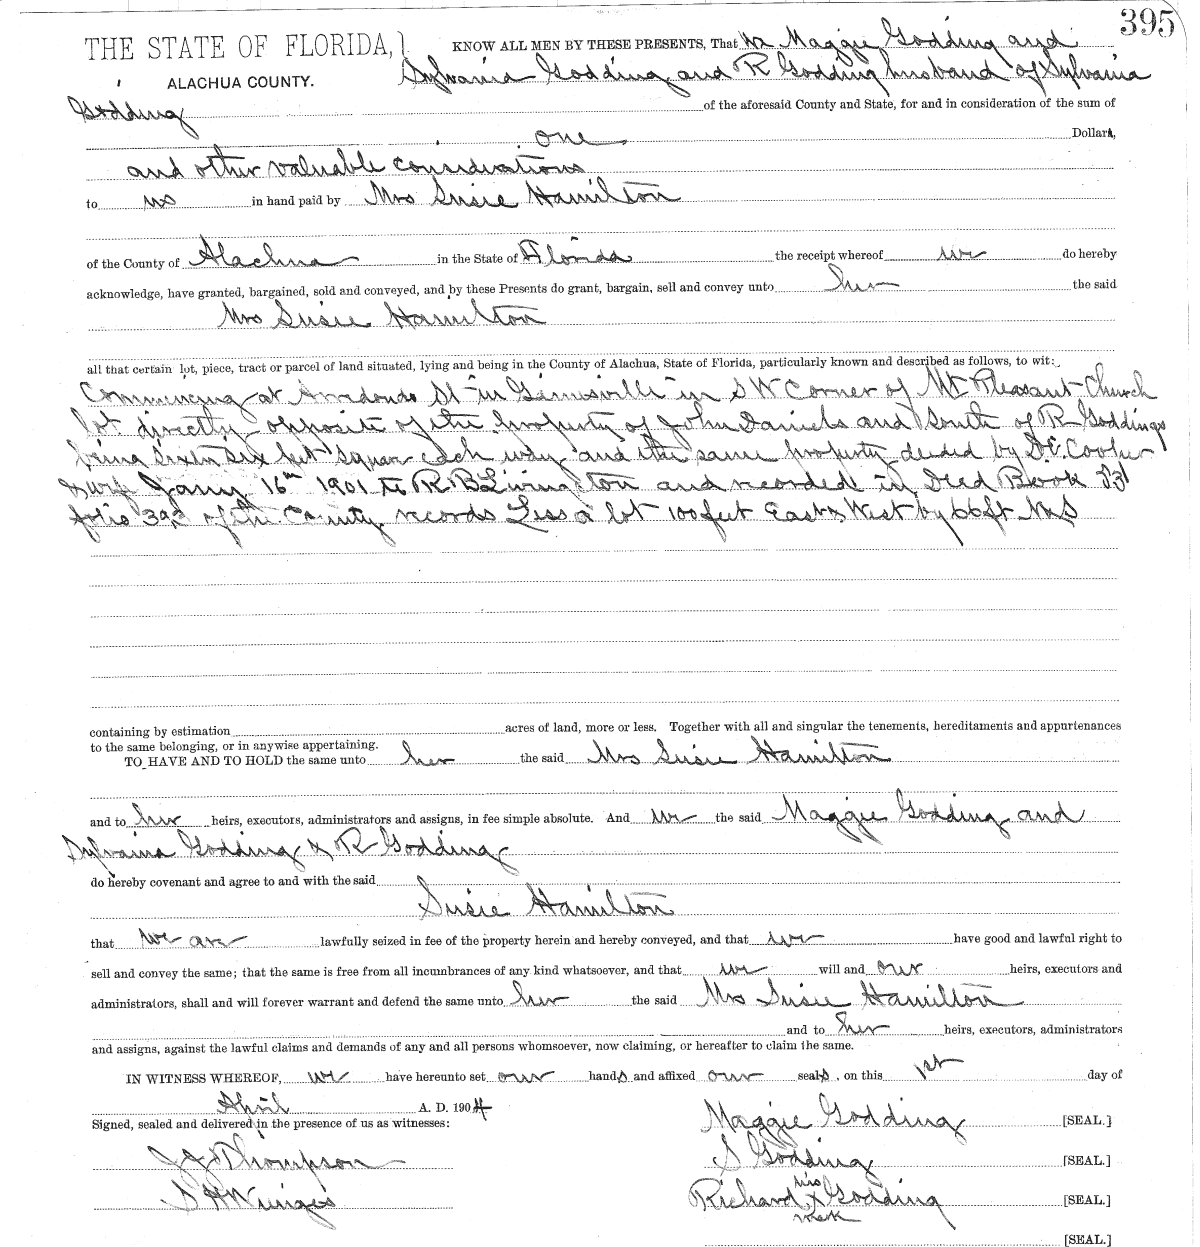 395
THE STATE OF FLORIDA,} KNOW ALL MEN BY THESE PRESENTS, That we Maggie Godding and
ALACHUA COUNTY. Sylvania Godding and R Godding husband of Sylvania
Godding of the aforesaid County and State, for and in consideration of the sum of
one Dollar,
and other valuable considerations
to us in hand paid by Mrs Susie Hamilton
of the County of Alachua in the State of Florida the receipt whereof we do hereby
acknowledge, have granted, bargained, sold and conveyed, and by these Presents do grant, bargain, sell and convey unto her the said
Mrs Susie Hamilton
all that certain lot, piece, tract or parcel of land situated, lying and being in the County of Alachua, State of Florida, particularly known and described as follows, to wit:
Commencing at Arredondo St in Gainesville in S W Corner of Mt Pleasant Church
lot directly opposite of the property of John Daniels and South of R Goddings
being sixty six feet square each way and the same property deeded by
Jany 16th 1901 to R.B. Livingston and recorded in Deed Book
folio of the County records Less a lot 100 feet East & West by 66 ft N & S
containing by estimation acres of land, more or less. Together with all and singular the tenements, hereditaments and appurtenances
to the same belonging, or in anywise appertaining.
TO HAVE AND TO HOLD the same unto her the said Mrs Susie Hamilton
and to her heirs, executors, administrators and assigns, in fee simple absolute. And we the said Maggie Godding and
Sylvania Godding & R Godding
do hereby covenant and agree to and with the said
Susie Hamilton
that we are lawfully seized in fee of the property herein and hereby conveyed, and that we have good and lawful right to
sell and convey the same; that the same is free from all incumbrances of any kind whatsoever, and that we will and our heirs, executors and
administrators, shall and will forever warrant and defend the same unto her the said Mrs Susie Hamilton
and to her heirs, executors, administrators
and assigns, against the lawful claims and demands of any and all persons whomsoever, now claiming, or hereafter to claim the same.
IN WITNESS WHEREOF, we have hereunto set our hands and affixed our seals, on this 1st day of
April A. D. 1904
Signed, sealed and delivered in the presence of us as witnesses: Maggie Godding [SEAL.]
Thompson S Godding [SEAL.]
S H Richard his x mark Godding [SEAL.]
[SEAL.]